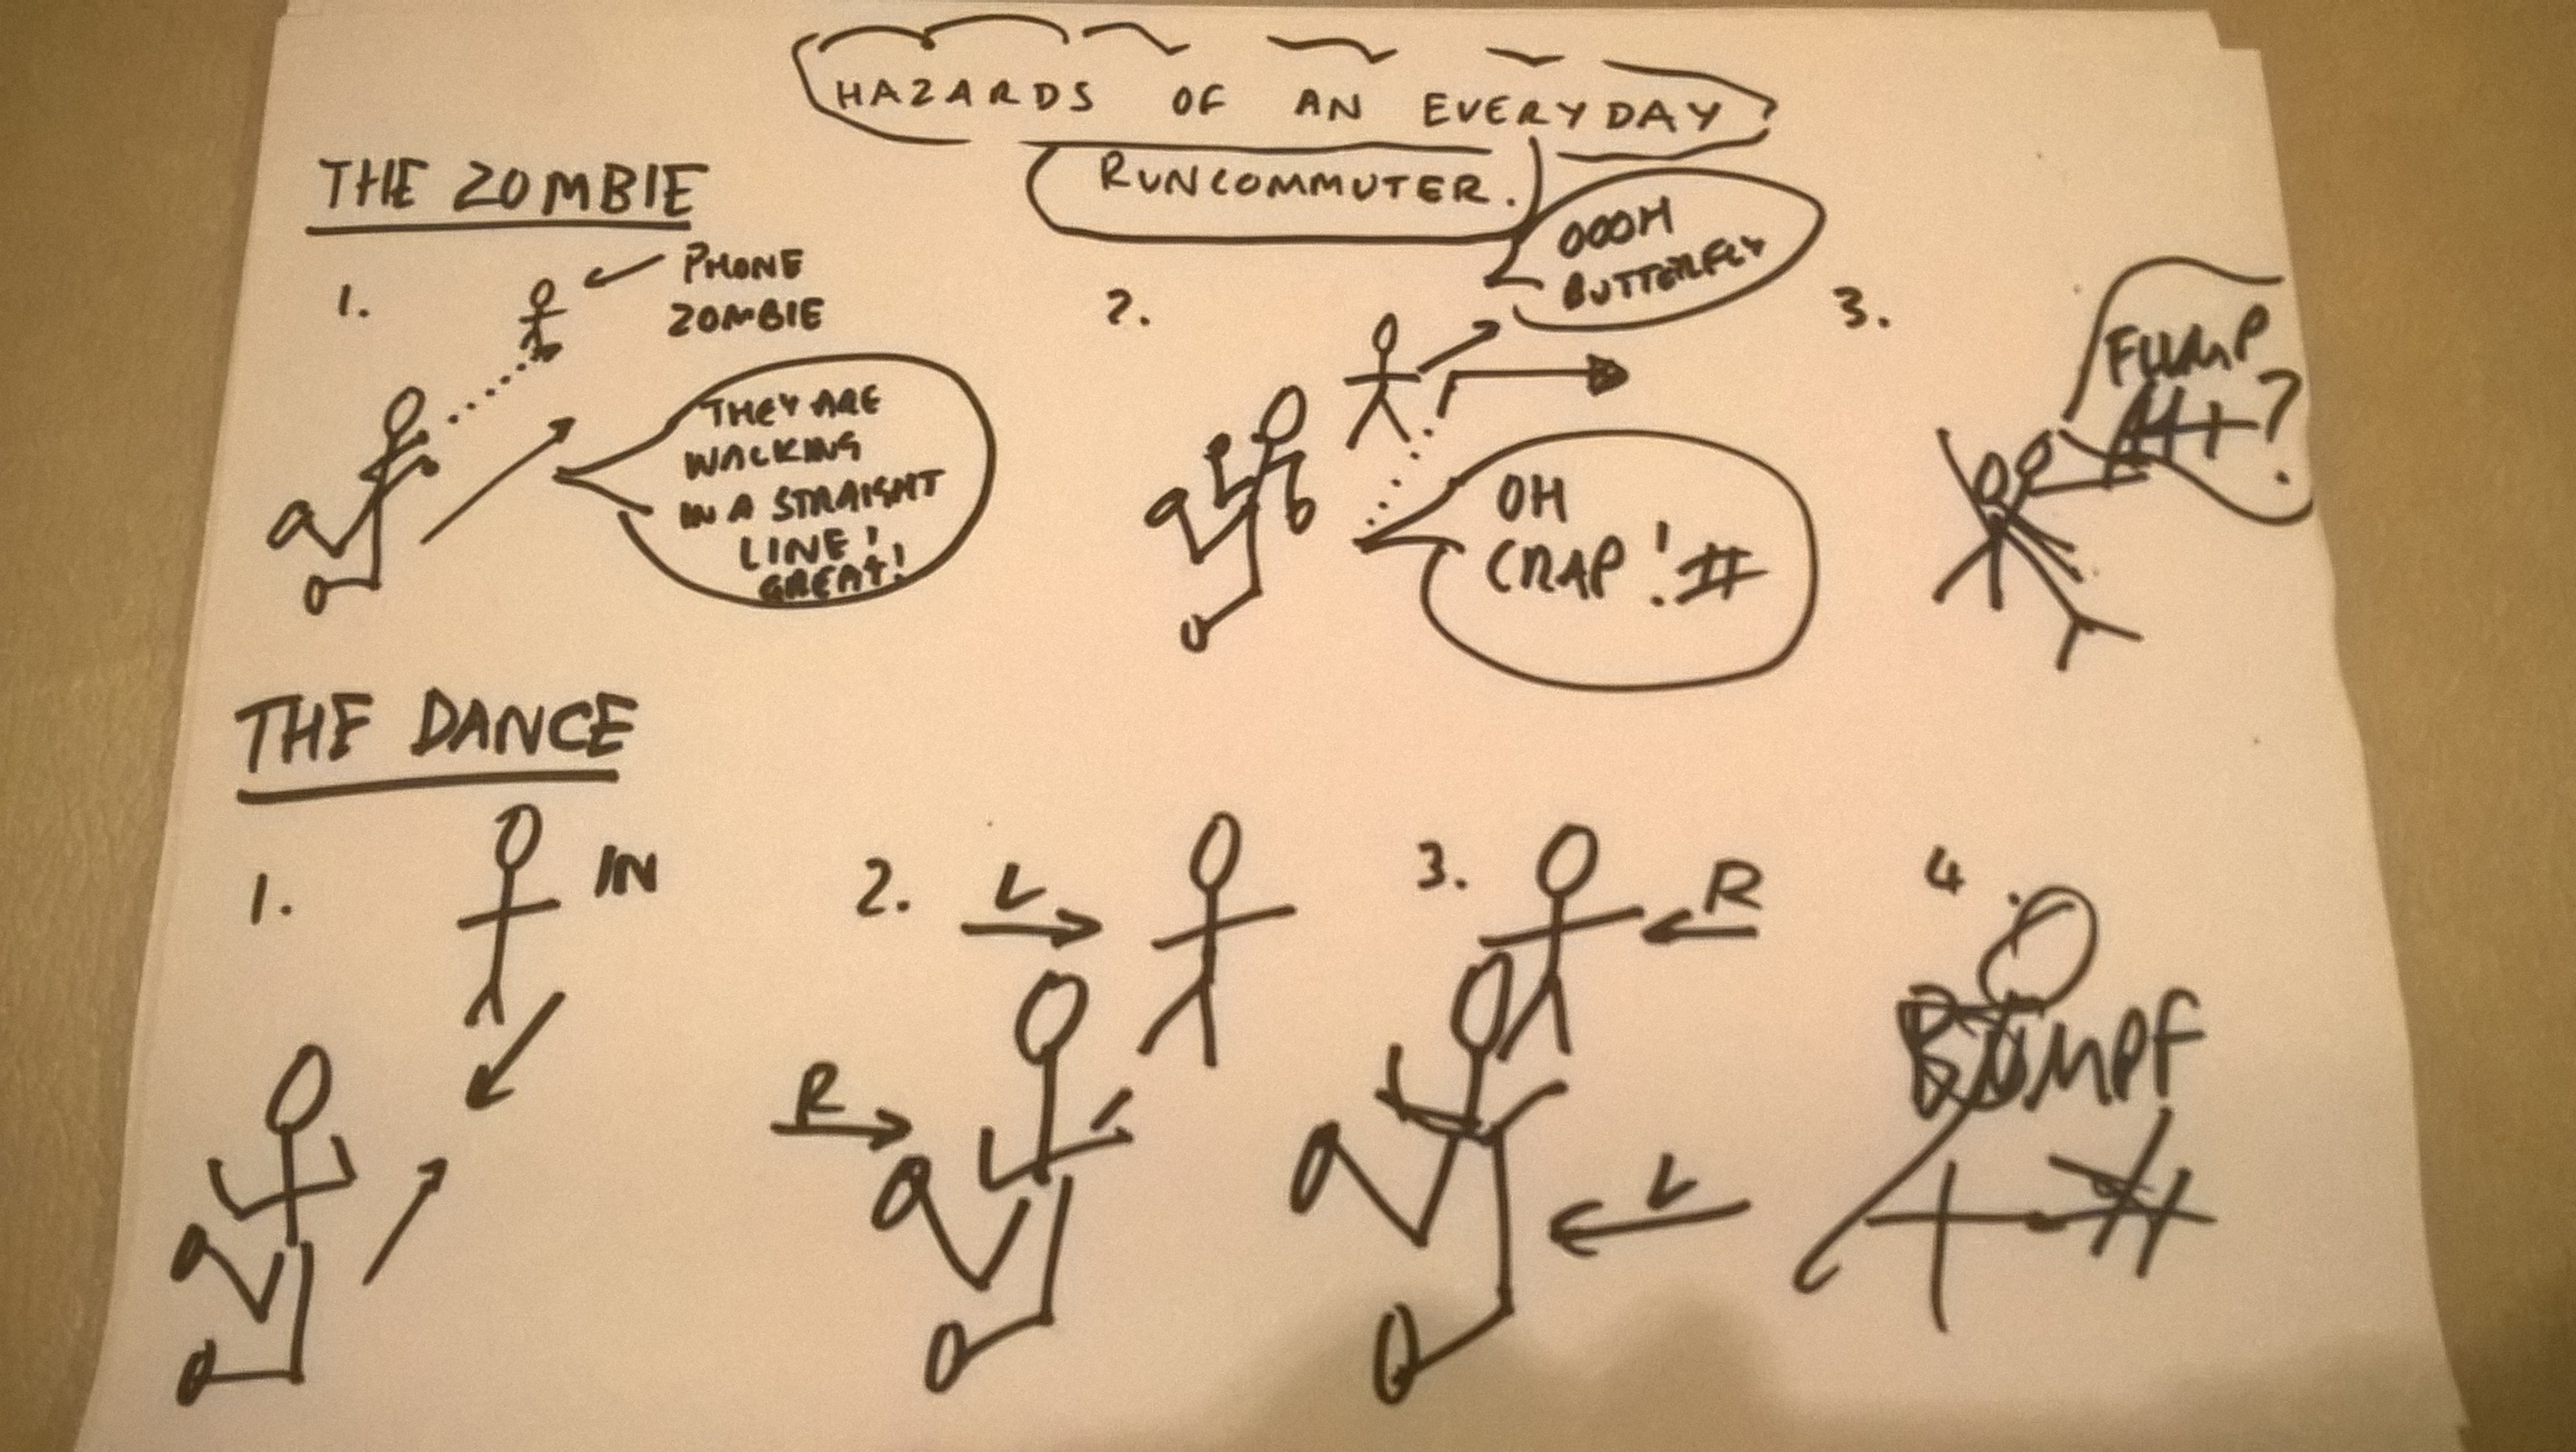 HAZARDS OF AN EVERYDAY
RUNCOMMUTER.
THE ZOMBIE
1.
PHONE
ZOMBIE
THEY ARE
WALKING
IN A STRAIGHT
LINE!
GREAT!
2.
OOOH
BUTTERFLY
OH
CRAP!#
3.
FUMP
#+?!
THE DANCE
1.
IN
2.
L
R
3.
R
L
4.
BUMPF
#